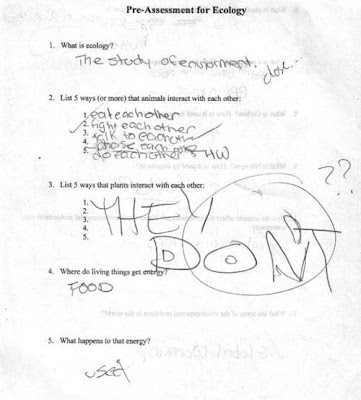 Pre-Assessment for Ecology
1. What is ecology?
The study of enviorment.
close...
2. List 5 ways (or more) that animals interact with each other:
1. eat each other
2. fight each other
3. talk to each other
4. chase each other
5. do each other's HW
3. List 5 ways that plants interact with each other:
1.
2.
3.
4.
5.
THEY
DONT
??
4. Where do living things get energy?
FOOD
5. What happens to that energy?
used